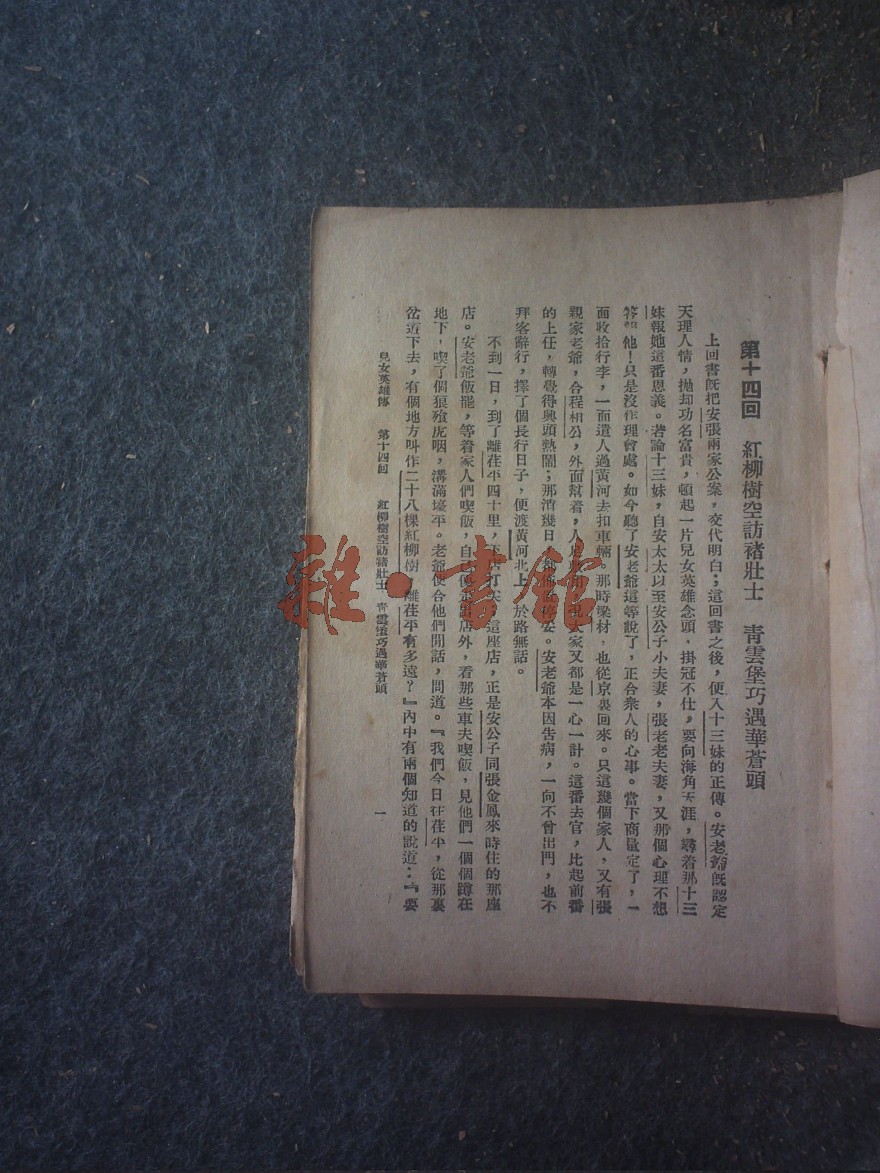 第十四回　紅柳樹空訪褚壯士　青雲堡巧遇華蒼頭
上回書既把安張兩家公案，交代明白；這回書之後，便入十三妹的正傳。安老爺既認定
天理人情，拋却功名富貴，頓起一片兒女英雄念頭，掛冠不仕，要向海角天涯，尋着那十三
妹報她這番恩義。若論十三妹，自安太太以至安公子小夫妻，張老老夫妻，又那個心理不想
答報他！只是沒作理會處。如今聽了安老爺這等說了，正合衆人的心事。當下商量定了，一
面收拾行李，一面遣人過黃河去扣車輛。那時梁材，也從京裏回來。只這幾個家人，又有張
親家老爺，合程相公，外面幫着，人足用，況大家又都是一心一計。這番去官，比起前番
的上任，轉覺得興頭熱鬧；那消幾日，安。安老爺本因告病，一向不曾出門，也不
拜客辭行，擇了個長行日子，便渡黃河北上，於路無話。
不到一日，到了離茌平四十里，下店打尖，這座店，正是安公子同張金鳳來時住的那座
店。安老爺飯罷，等着家人們喫飯，自己便走出店外，看那些車夫喫飯，見他們一個個蹲在
地下，喫了個狼飱虎咽，溝滿壕平。老爺便合他們閒話，問道。『我們今日在茌平，從那裏
岔道下去，有個地方叫作二十八棵紅柳樹，離茌平有多遠？』內中有兩個知道的說道：『要
兒女英雄傳　第十四回　紅柳樹空訪褚壯士　青雲堡巧遇華蒼頭　一
雜·書館